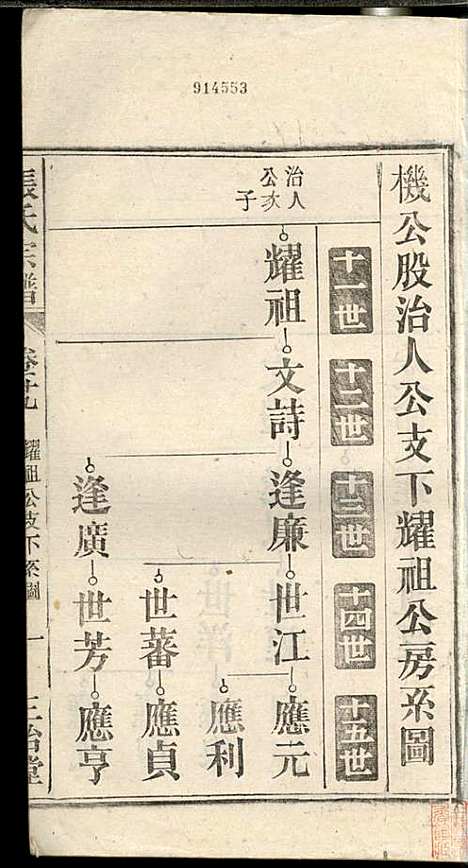 914553
機公股治人公支下耀祖公房系圖
十一世
十二世
十三世
十四世
十五世
治人
公次
子
耀祖
文詩
逢廉
世江
應元
應利
世蕃
應貞
逢廣
世芳
應亨
張氏宗譜
卷十九
耀祖公支下系圖
一